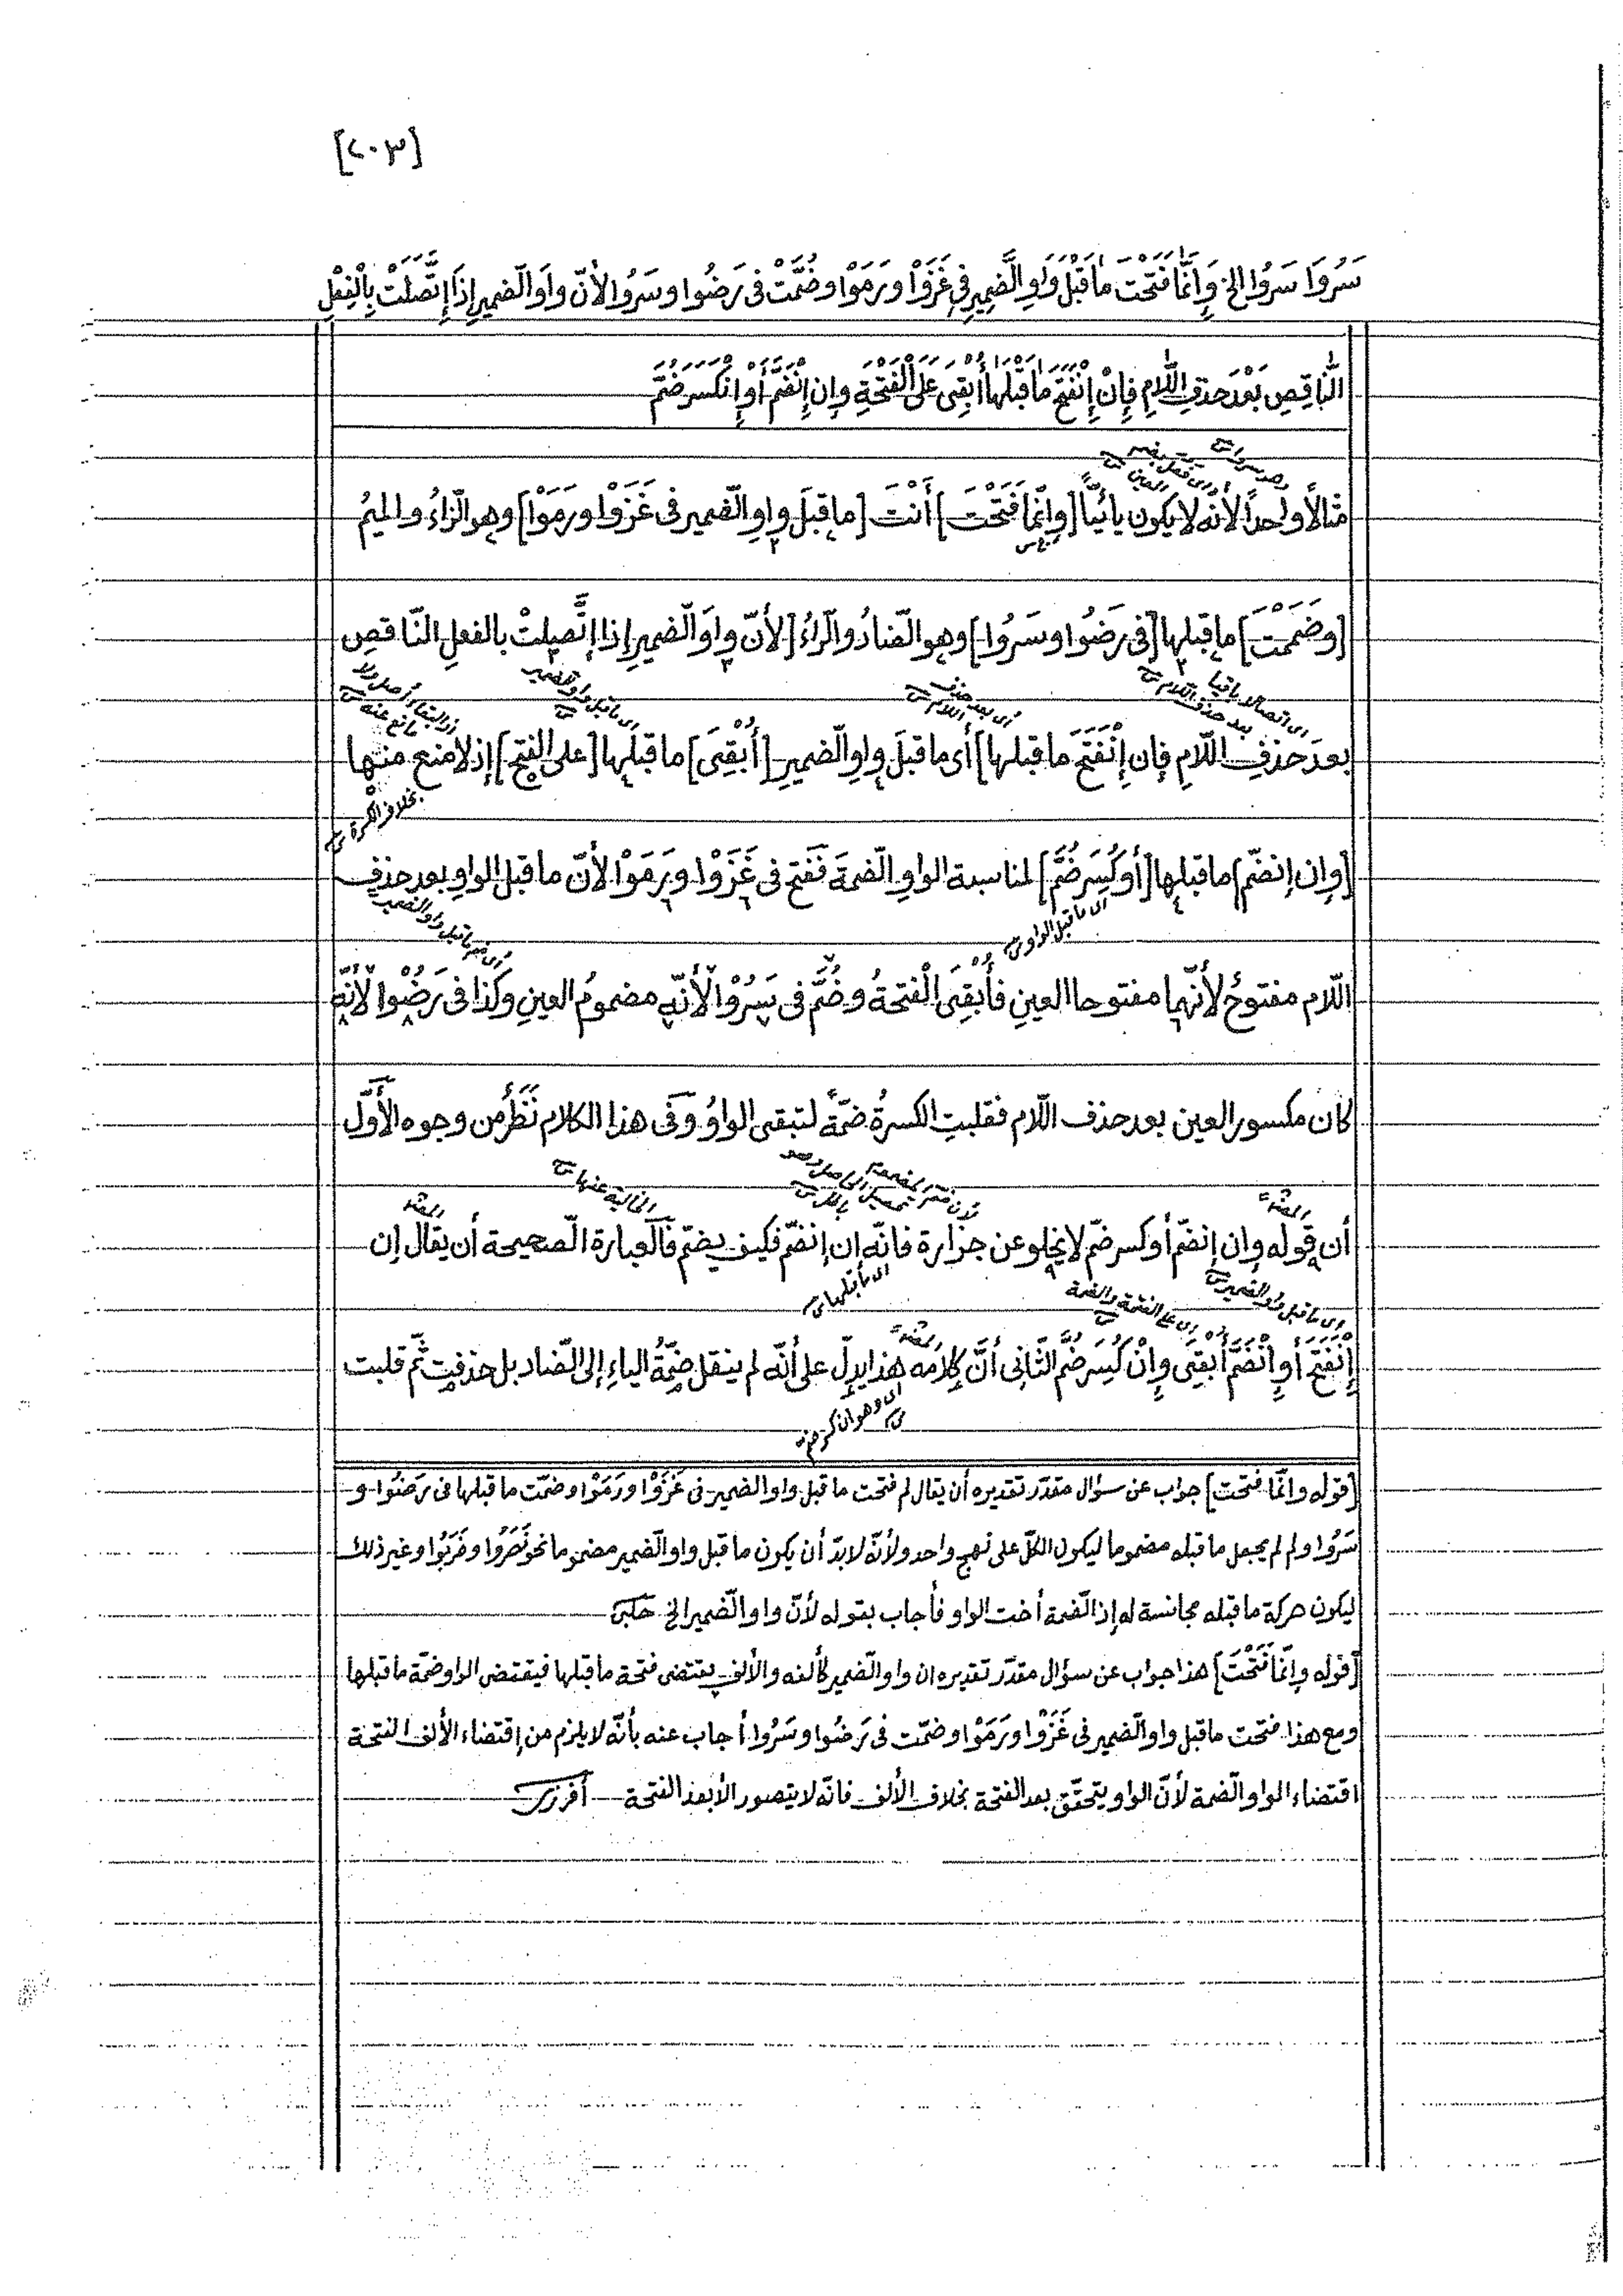 [٢٠٣]
سَرُوَا سَرُوا الخ وَإِنَّمَا فَتَحْتَ مَا قَبْلَ وَاوِ الضَّمِيرِ فِي غَزَوْا وَرَمَوْا وَضُمَّتْ فى رَضُوا وسَرُوا لأنّ واوَ الضميرِ إِذَا إِتَّصَلَتْ بِالْفِعْلِ
النَّاقِصِ بَعْدَ حَذفِ اللَّامِ فَإِنْ إِنْفَتَحَ مَا قَبْلَهَا أُبْقِيَ عَلَى الْفَتْحَةِ وإن إِنْضَمَّ أَوْ إِنْكَسَرَ ضُمَّ
مثالًا واحداً لأنه لا يكون يائيًّا [وإنّما فَتَحْتَ] أَنْتَ [ما قبلَ واوِ الضمير فى غَزَوْا ورَمَوْا] وهو الزاءُ والميمُ
[وضَمَمْتَ] ما قبلها [فى رَضُوا وسَرُوا] وهو الضادُ والراءُ [لأنّ واوَ الضميرِ إذا إتَّصلتْ بالفعلِ النّاقصِ
اى اتصالا باقيا بعد حذف اللام
أى بعد حذف اللام
اى ما قبل واو الضمير
بعدَ حذفِ اللّامِ فإن إِنْفَتَحَ ما قبلها] أى ما قبلَ واوِ الضميرِ [أُبْقِىَ] ما قبلَها [على الفتحِ] إذ لا منع منها
بخلاف الكسرة
[وإن إنضمّ] ما قبلها [أو كُسِرَ ضُمَّ] لمناسبة الواوِ الضمةَ فَفتح فى غَزَوْا ورَمَوْا لأنّ ما قبل الواوِ بعد حذفِ
اى ما قبل الواو
أى ضم ما قبل واو الضمير
اللّام مفتوحٌ لأنّهما مفتوحا العينِ فأُبْقِىَ الْفتحةُ وضُمَّ فى سَرُوْا لأنّه مضمومُ العينِ وكذا فى رَضُوْا لأنّه
كان مكسور العين بعد حذف اللّام فقلبتِ الكسرةُ ضمّةً لتبقى الواوُ وفى هذا الكلام نَظَرٌ من وجوه الأَوَّل
الخالية عنها
أن قوله وإن إنضمّ أو كسر ضمّ لا يخلو عن حزارة فانّه إن إنضمّ فكيف يضمّ فالعبارة الصحيحة أن يقال إن
اى ما قبلها
اى ما قبل واو الضمير
اى على الفتحة والضمة
إِنْفَتَحَ أو إِنْضَمَّ أُبْقِىَ وإِنْ كُسِرَ ضُمَّ الثّانِى أنَّ كلامَه هذا يدلّ على أنّه لم ينقل ضمّةُ الياءِ إلى الضاد بل حذفت ثمّ قلبت
[قوله وإنّما فتحت] جواب عن سؤال مقدّر تقديره أن يقال لم فتحت ما قبل واو الضمير فى غَزَوْا ورَمَوْا وضمّت ما قبلها فى رَضُوا و
سَرُوا ولم لم يجعل ما قبله مضموما ليكون الكلّ على نهج واحد ولأنّه لا بدّ أن يكون ما قبل واو الضمير مضموما نحو نَصَرُوا وضَرَبُوا وغير ذلك
ليكون حركة ما قبله مجانسة له إذ الضمة أخت الواو فأجاب بقوله لأنّ واو الضمير الخ
[قوله وإنّما فَتَحْتَ] هذا جواب عن سؤال مقدّر تقديره ان واو الضمير كألفه والألف يقتضى فتحة ما قبلها فيقتضى الواو ضمّة ما قبلها
ومع هذا فتحت ما قبل واو الضمير فى غَزَوْا ورَمَوْا وضمّت فى رَضُوا وسَرُوا أجاب عنه بأنّه لا يلزم من إقتضاء الألف الفتحة
اقتضاء الواو الضمة لأنّ الواو يتحقّق بعد الفتحة بخلاف الألف فانّه لا يتصور الا بعد الفتحة